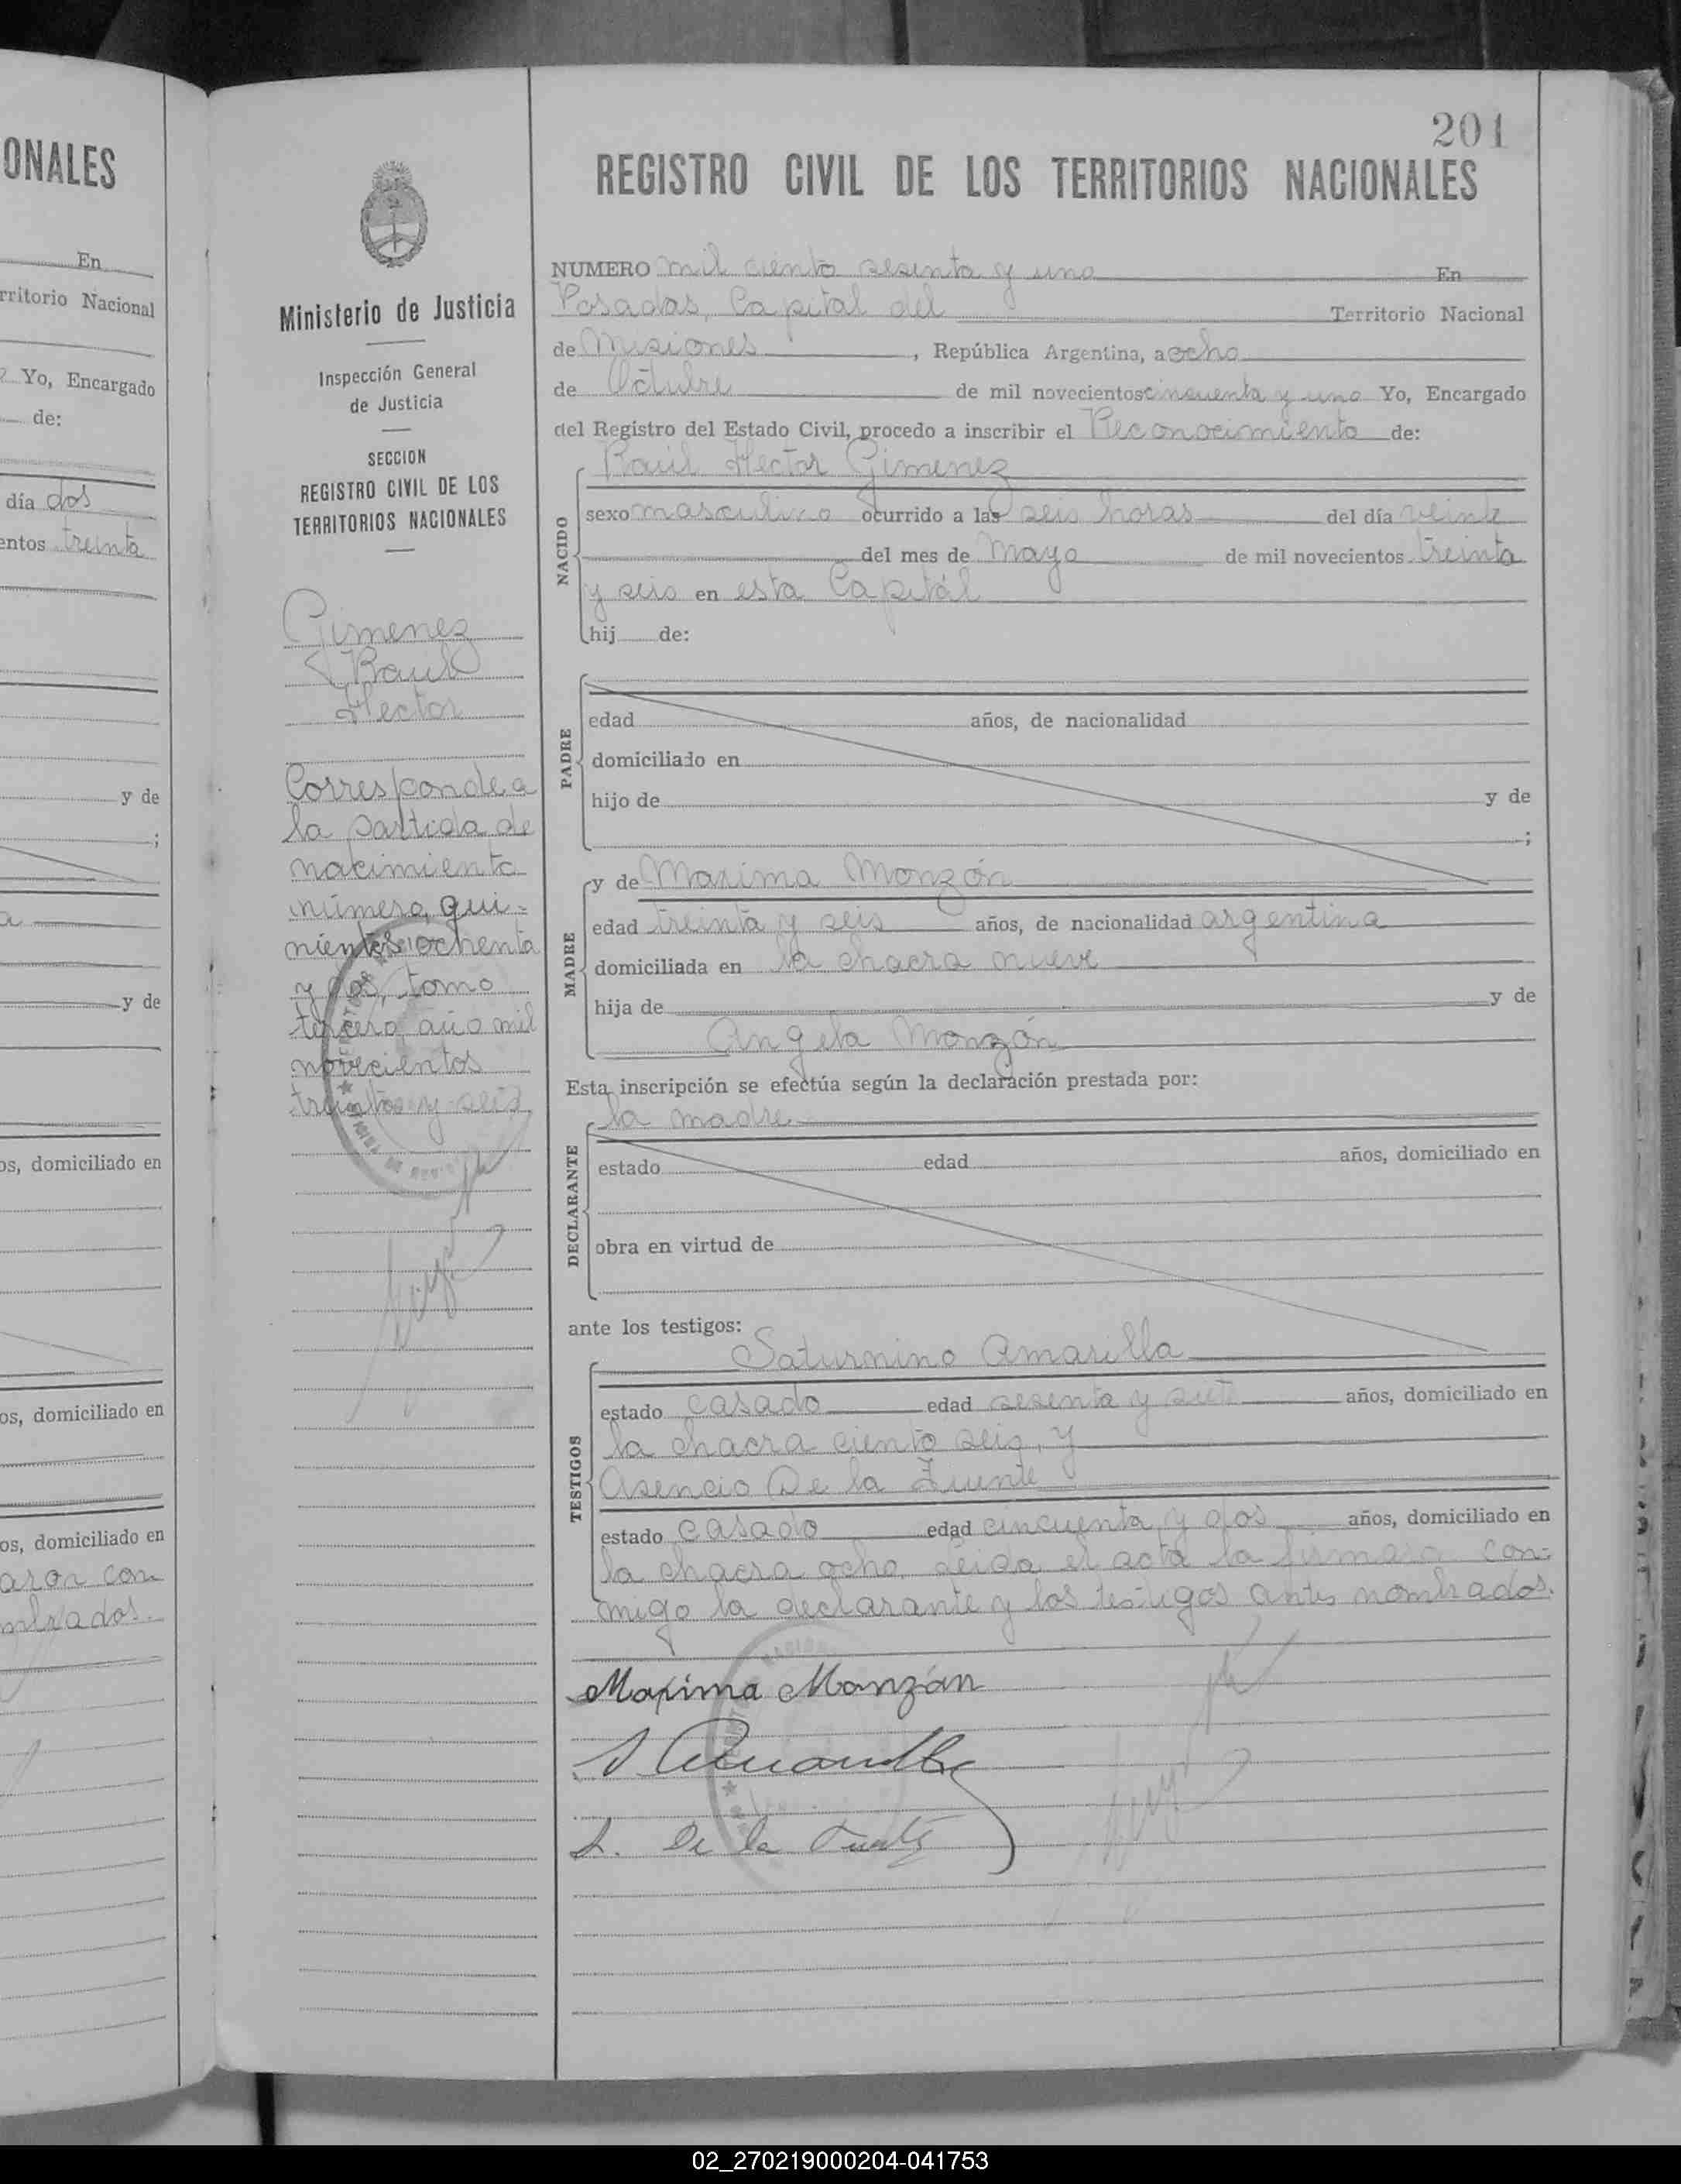 ONALES
En
rritorio Nacional
Yo, Encargado
de:
día dos
entos treinta
y de
;
a
y de
os, domiciliado en
os, domiciliado en
os, domiciliado en
aron con
mbrados.
Ministerio de Justicia
Inspección General
de Justicia
SECCION
REGISTRO CIVIL DE LOS
TERRITORIOS NACIONALES
Gimenez
Raul
Hector
Corresponde a
la partida de
nacimiento
número qui-
nientos ochenta
y dos, tomo
tercero año mil
novecientos
treinta y seis
201
REGISTRO CIVIL DE LOS TERRITORIOS NACIONALES
NUMERO mil ciento sesenta y uno En
Posadas, Capital del Territorio Nacional
de Misiones, República Argentina, a ocho
de Octubre de mil novecientos cincuenta y uno Yo, Encargado
del Registro del Estado Civil, procedo a inscribir el Reconocimiento de:
NACIDO
Raúl Hector Gimenez
sexo masculino ocurrido a las seis horas del día veinte
del mes de Mayo de mil novecientos treinta
y seis en esta Capital
hij de:
PADRE
edad años, de nacionalidad
domiciliado en
hijo de y de
;
MADRE
y de Maxima Monzón
edad treinta y seis años, de nacionalidad argentina
domiciliada en la chacra nueve
hija de y de
Angela Monzón
Esta inscripción se efectúa según la declaración prestada por:
DECLARANTE
la madre
estado edad años, domiciliado en
obra en virtud de
ante los testigos:
TESTIGOS
Saturnino Amarilla
estado casado edad sesenta y siete años, domiciliado en
la chacra ciento seis, y
Asencio De la Fuente
estado casado edad cincuenta y dos años, domiciliado en
la chacra ocho. Leida el acta la firmaron con-
migo la declarante y los testigos antes nombrados.
Maxima Manzón
S Amarilla
A. De la Fuente
02_270219000204-041753